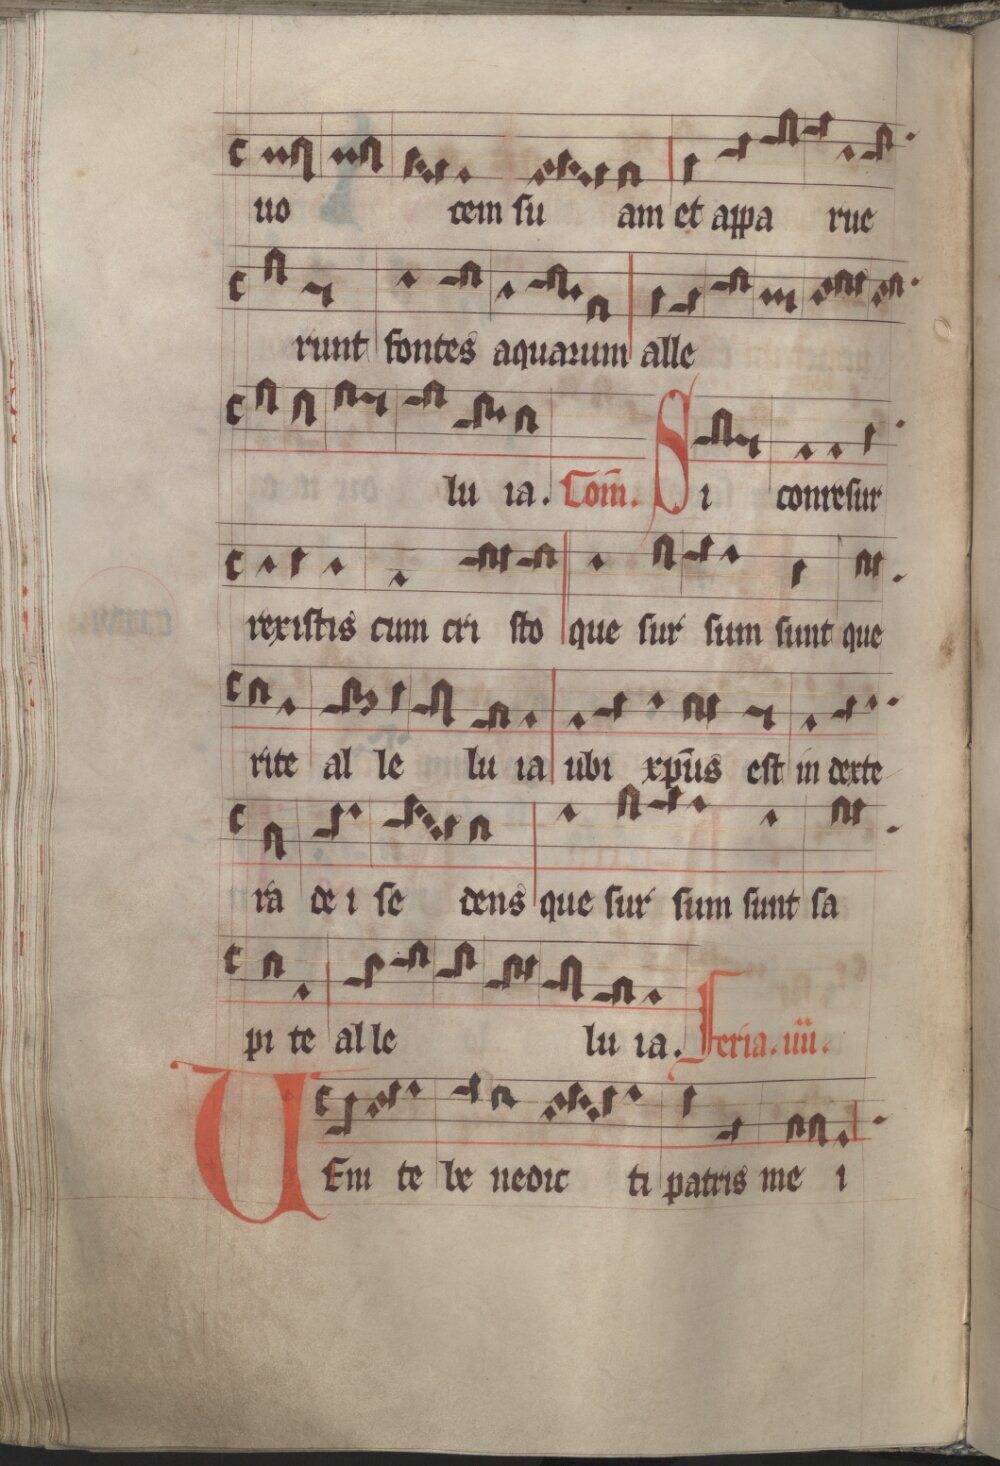 uo cem su am et appa rue
runt fontes aquarum alle
lu ia. Com̄. Si conresur
rexistis cum cri sto que sur sum sunt que
rite al le lu ia ubi xp̄us est in dexte
ra de i se dens que sur sum sunt sa
pi te al le lu ia. Feria. iiii.
UEni te be nedic ti patris me i